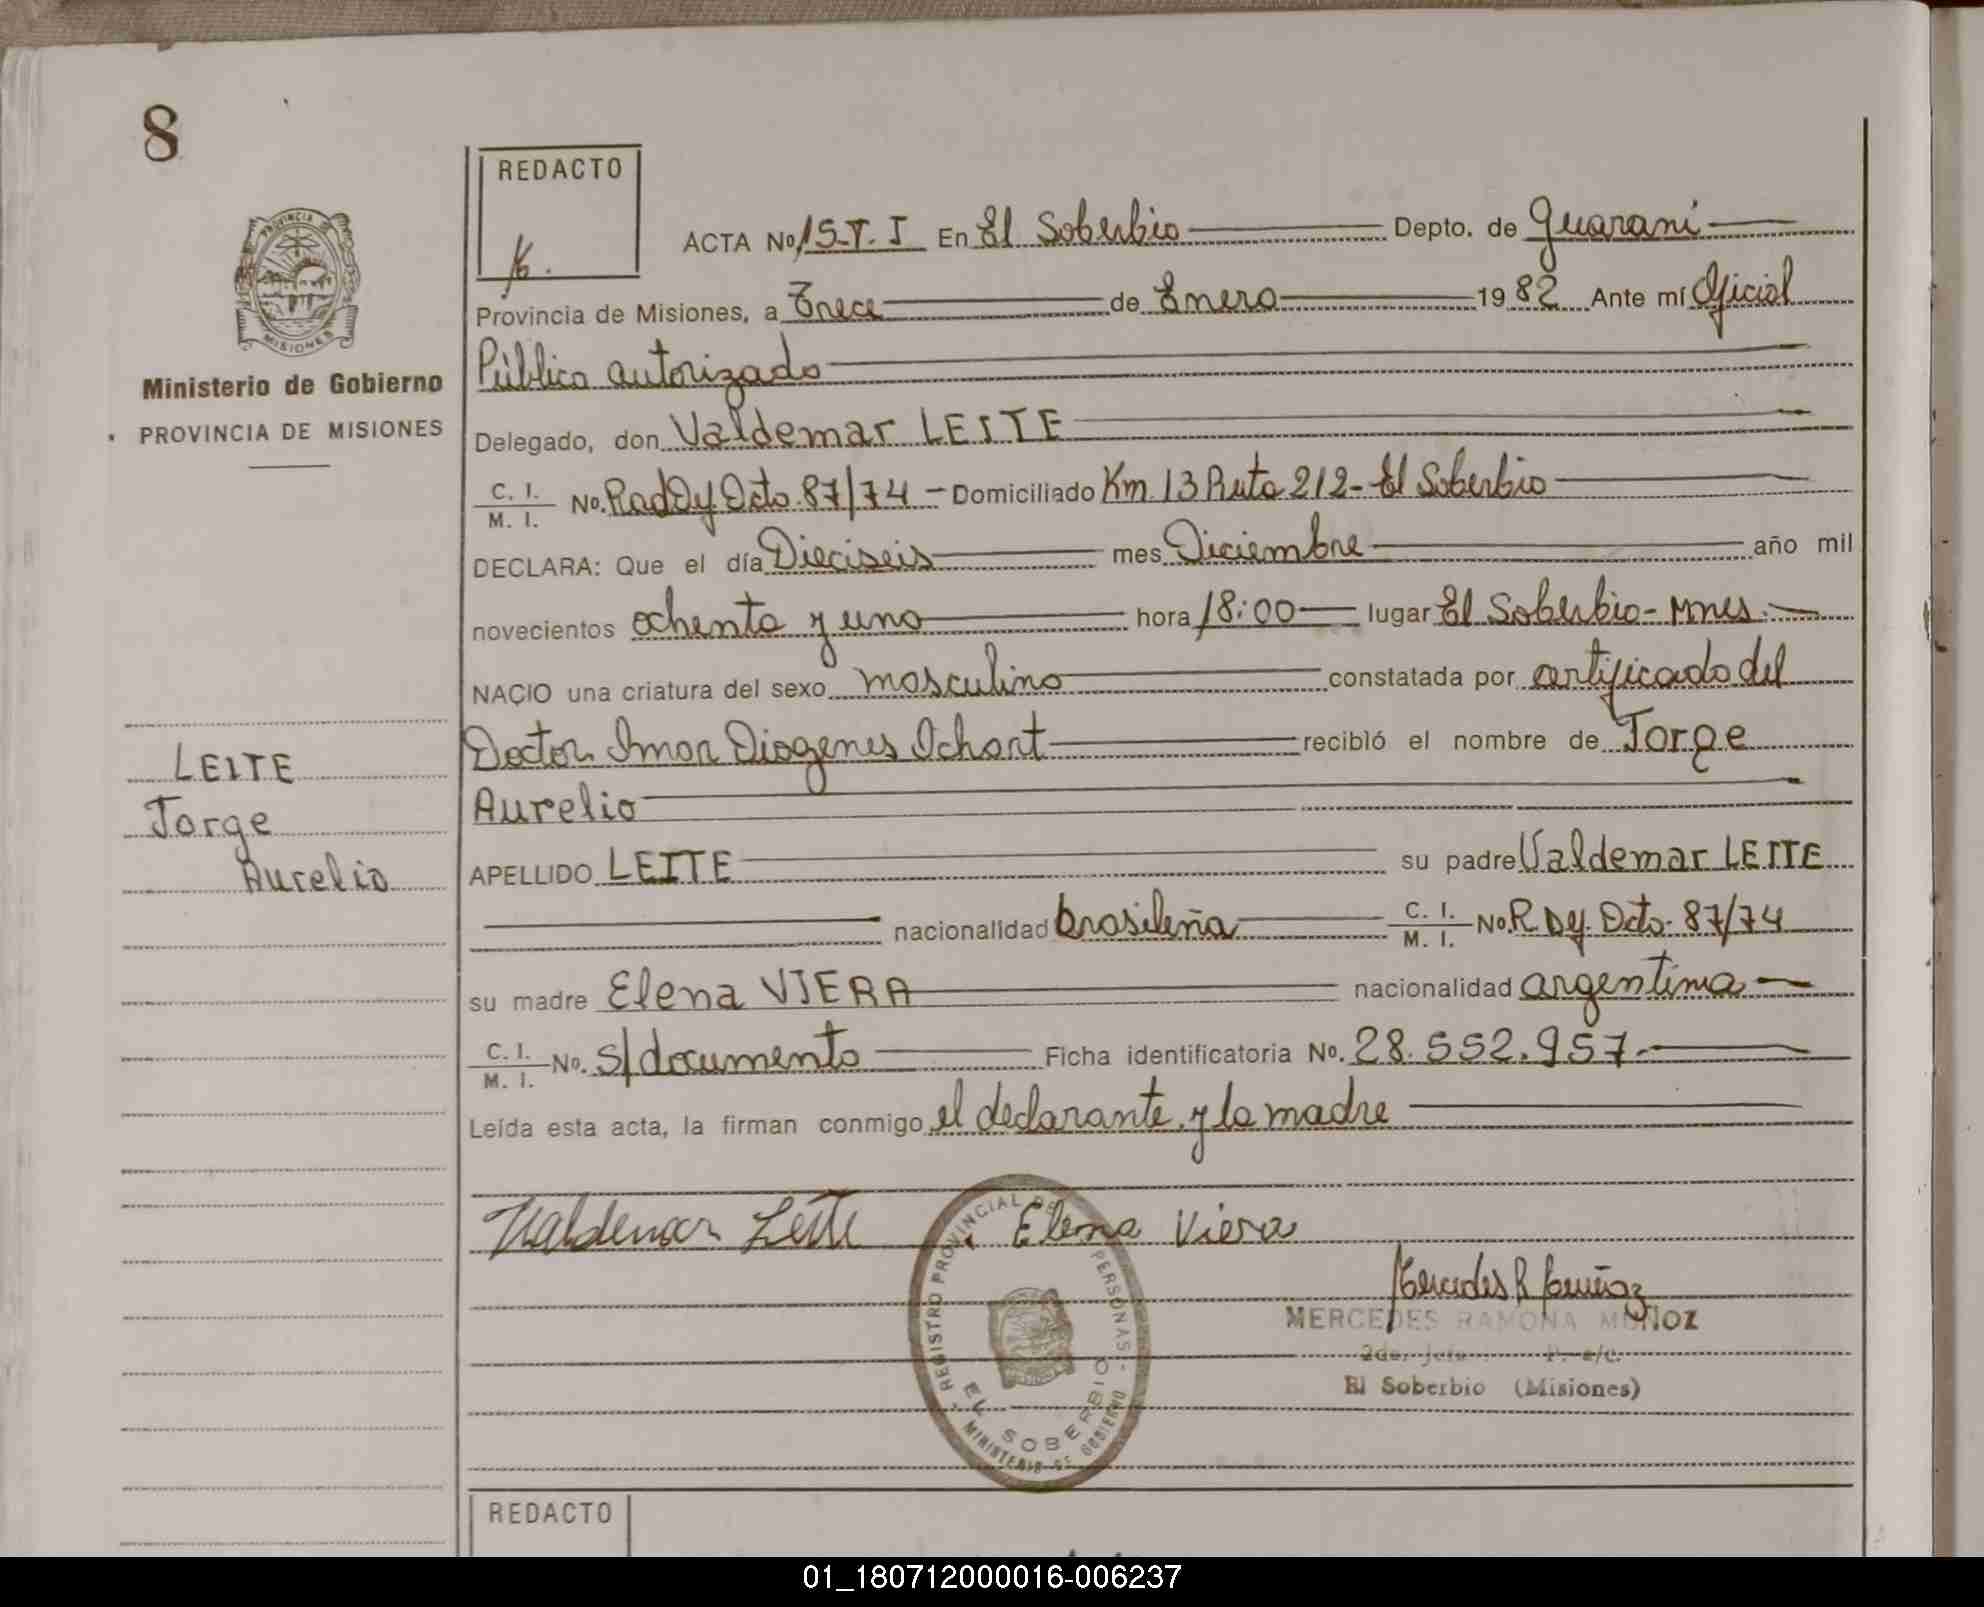 8
REDACTO
ACTA No 15-T. I En El Soberbio Depto. de Guarani
Provincia de Misiones, a Trece de Enero 1982 Ante mí Oficial
Público autorizado
Delegado, don Valdemar LEITE
C. I. / M. I. No. Rad Dy Dcto. 87/74 - Domiciliado Km 13 Ruta 212 - El Soberbio
DECLARA: Que el día Dieciseis mes Diciembre año mil
novecientos ochenta y uno hora 18:00 lugar El Soberbio - Mnes.
NACIO una criatura del sexo masculino constatada por certificado del
Doctor Imar Diogenes Ochart recibió el nombre de Jorge
Aurelio
APELLIDO LEITE su padre Valdemar LEITE
nacionalidad brasileña C. I. / M. I. No. R Dy. Dcto. 87/74
su madre Elena VIERA nacionalidad argentina
C. I. / M. I. No. S/documento Ficha identificatoria No. 28.552.957.-
Leída esta acta, la firman conmigo el declarante y la madre
Valdemar Leite Elena Viera
MERCEDES RAMONA MUÑOZ
El Soberbio (Misiones)
REGISTRO PROVINCIAL DE PERSONAS - EL SOBERBIO
MINISTERIO DE GOBIERNO
PROVINCIA DE
MISIONES
Ministerio de Gobierno
PROVINCIA DE MISIONES
LEITE
Jorge
Aurelio
REDACTO
01_180712000016-006237